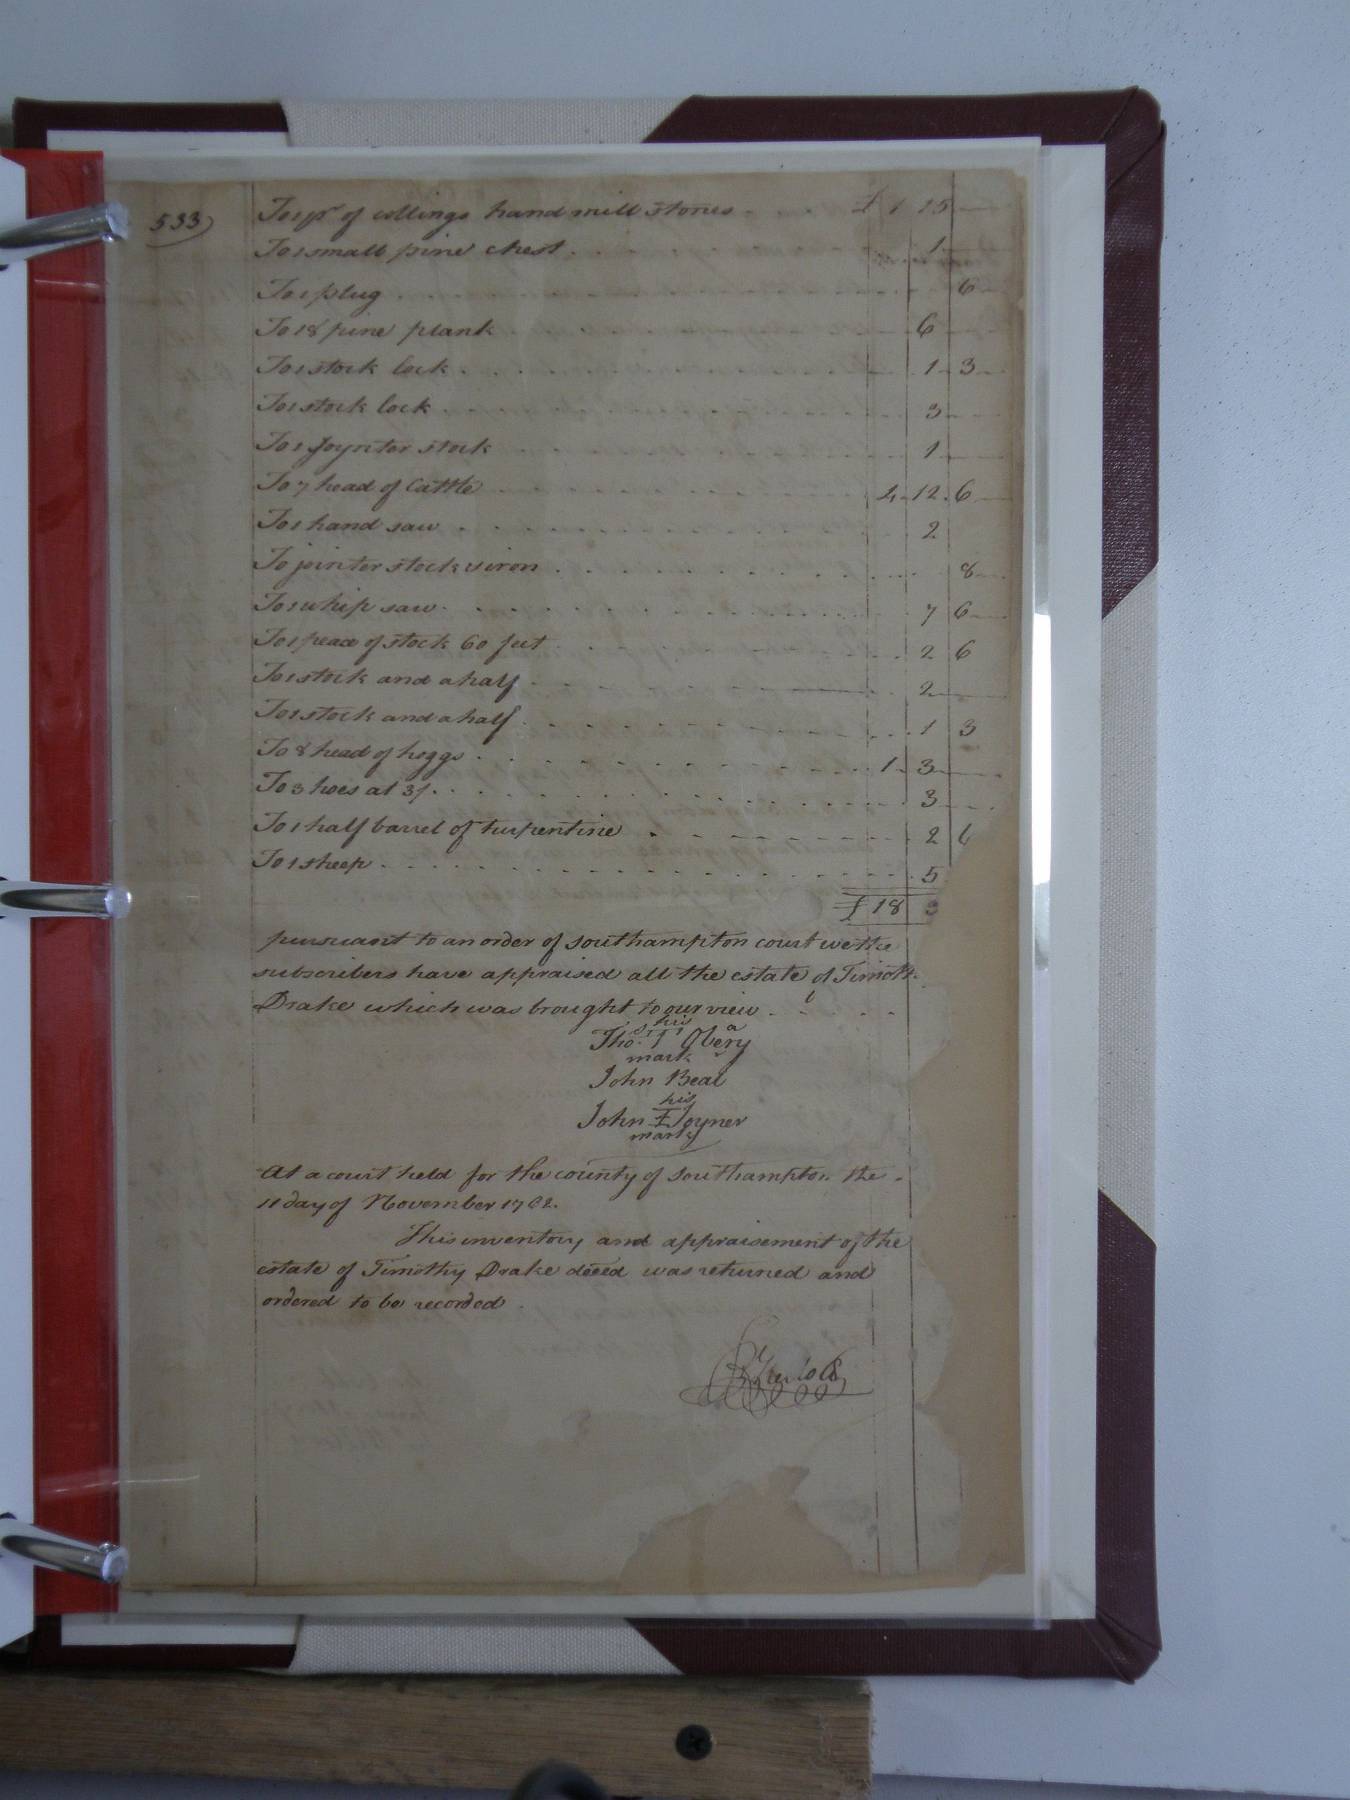 533)
To 1 pr of collings hand mill stones £ 1 15
To 1 small pine chest 1
To 1 plug 6
To 18 pine plank 6
To 1 stock lock 1 3
To 1 stock lock 3
To 1 Joynter stock 1
To 7 head of Cattle 4 12 6
To 1 hand saw 2
To jointer stock & iron 8
To 1 whip saw 7 6
To 1 peace of stock 60 feet 2 6
To 1 stock and a half 2
To 1 stock and a half 1 3
To 8 head of hoggs 1 3
To 3 hoes at 3/ 3
To 1 half barrel of turpentine 2 6
To 1 sheep 5
£ 18 3
pursuant to an order of southampton court we the
subscribers have appraised all the estate of Timoth
Drake which was brought to our view
his
Thos. Obery
mark
John Beal
his
John I Joyner
mark
At a court held for the county of Southampton the
11 day of November 1762.
This inventory and appraisement of the
estate of Timothy Drake deced was returned and
ordered to be recorded